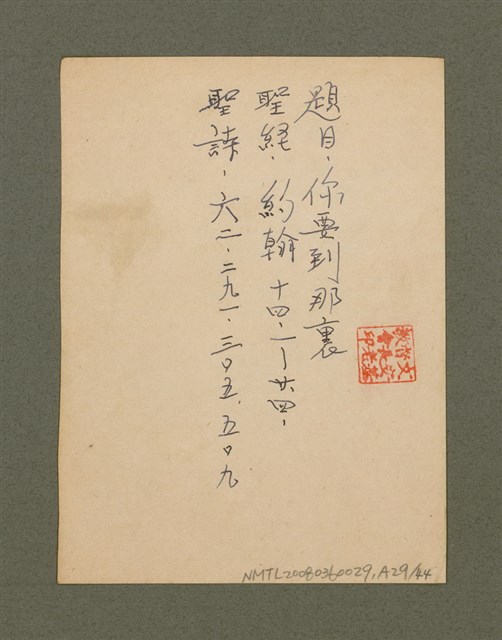 題目、你要到那裏
聖経、約翰 十四、一～廿四、
聖詩、六二、二九一、三〇五、五〇九
NMTL20080360029, A29/44